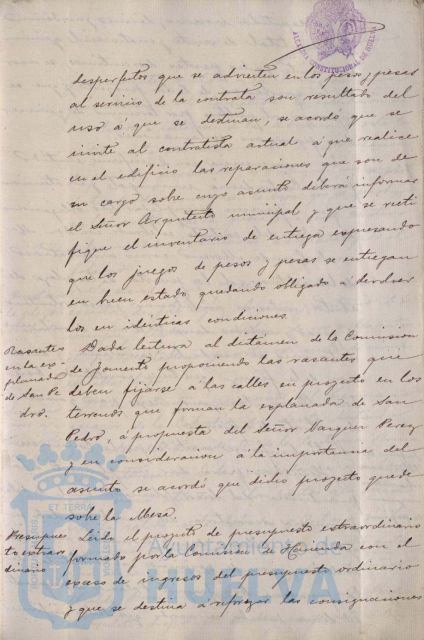 ALCALDIA CONSTITUCIONAL DE HUELVA
desperfectos que se advierten en los pesos y pesas
al servicio de la contrata son resultado del
uso á que se destinan, se acordó que se
invite al contratista actual á que realice
en el edificio las reparaciones que son de
su cargo sobre cuyo asunto deberá informar
el Señor Arquitecto municipal y que se recti
fique el inventario de entrega expresando
que los juegos de pesos y pesas se entregan
en buen estado quedando obligado á devolver
los en idénticas condiciones.
Rasantes
en la ex-
planada
de San Pe
dro.
Dada lectura al dictamen de la Comision
de Fomento proponiendo las rasantes que
deben fijarse á las calles en proyecto en los
terrenos que forman la explanada de San
Pedro, á propuesta del Señor Vazquez Perez
y en consideracion á la importancia del
asunto se acordó que dicho proyecto quede
sobre la Mesa.
Presupues
to extraor
dinario
Leido el proyecto de presupuesto extraordinario
formado por la Comision de Hacienda con el
exceso de ingresos del presupuesto ordinario
y que se destina á reforzar las consignaciones
Ayuntamiento de
HUELVA